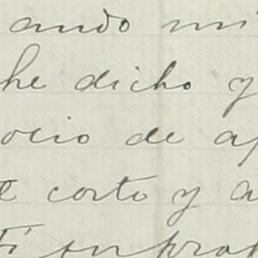 ando mi
he dicho y
ocio de a
corto y a